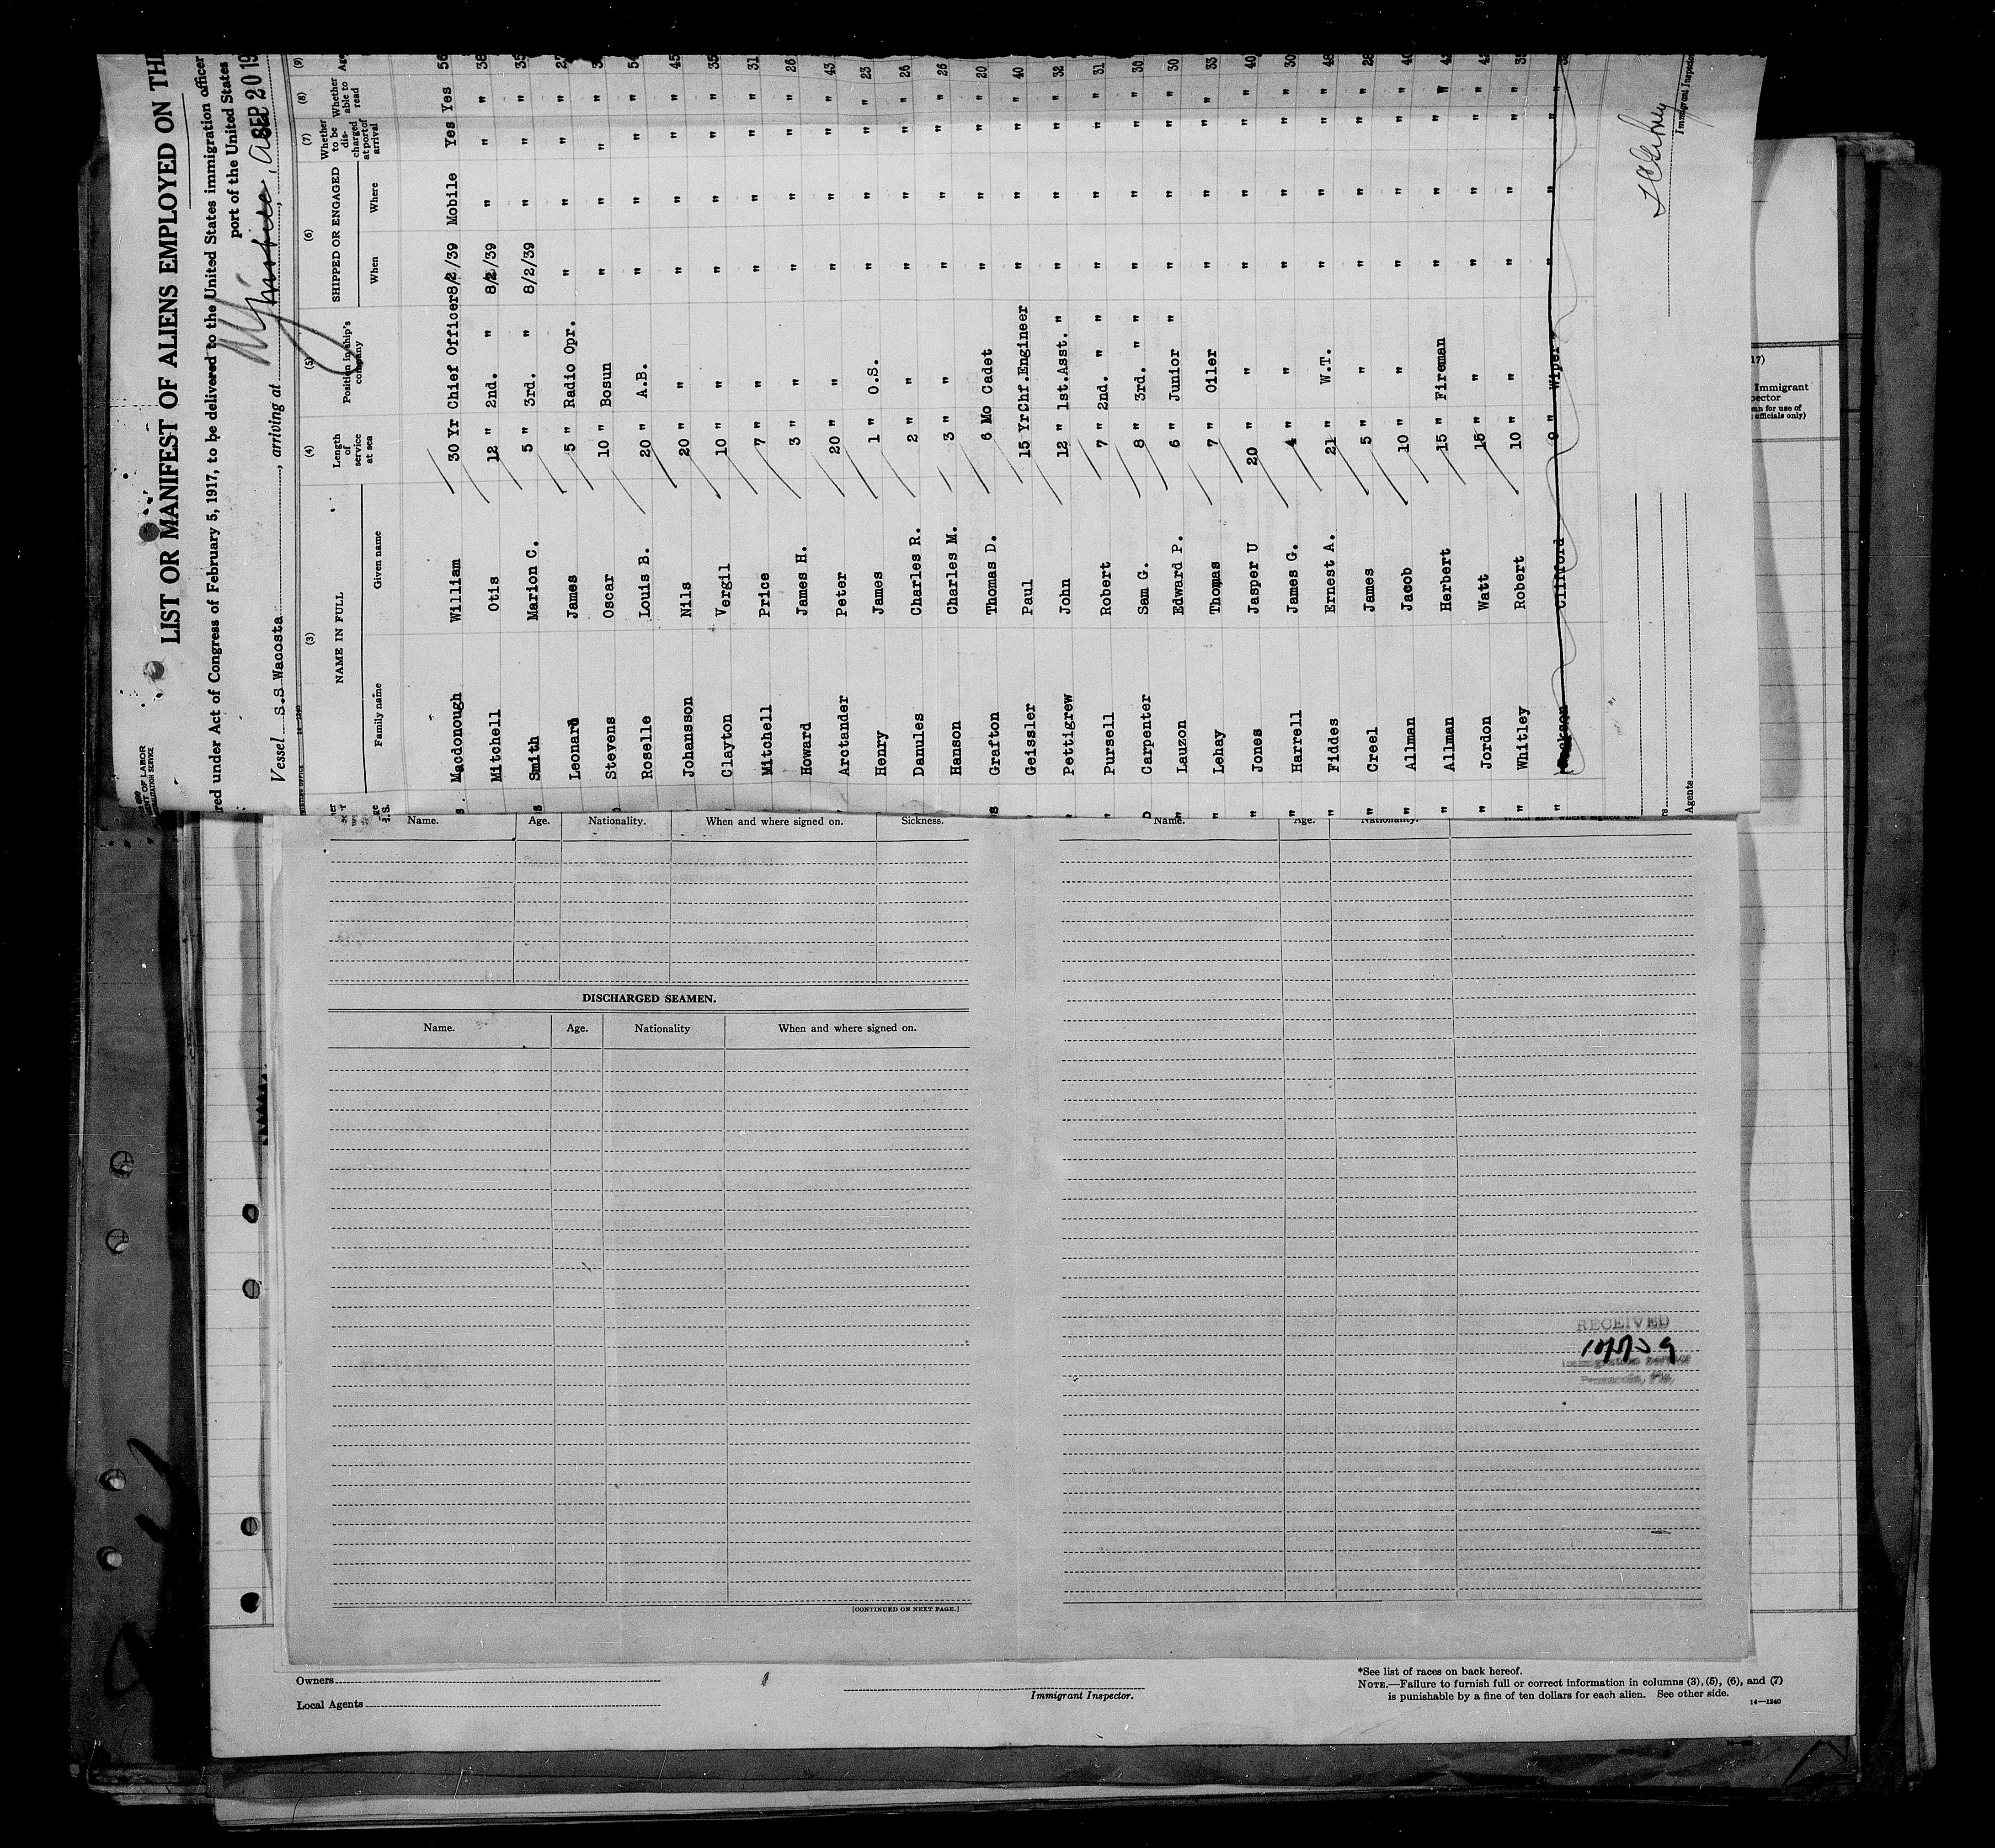 LIST OR MANIFEST OF ALIENS EMPLOYED ON TH
red under Act of Congress of February 5, 1917, to be delivered to the United States immigration officer
port of the United States
Vessel S.S Wacosta, arriving at SEP 20 19
14—1240
(3) (4) (5) (6) (7) (8) (9)
NAME IN FULL Length of service at sea Position in ship's company SHIPPED OR ENGAGED Whether to be discharged at port of arrival Whether able to read Age
Family name Given name When Where
Macdonough William 30 Yr Chief Officer 8/2/39 Mobile Yes Yes 56
Mitchell Otis 12 " 2nd. " 8/2/39 " " "
Smith Marion C. 5 " 3rd. " 8/2/39 " " " 35
Leonard James 5 " Radio Opr. " " " "
Stevens Oscar 10 " Bosun " " " "
Roselle Louis B. 20 " A.B. " " " " 54
Johansson Nils 20 " " " " " " 45
Clayton Vergil 10 " " " " " " 35
Mitchell Price 7 " " " " " " 31
Howard James H. 3 " " " " " " 26
Arotander Peter 20 " " " " " " 43
Henry James 1 " O.S. " " " " 23
Danules Charles R. 2 " " " " " " 26
Hanson Charles M. 3 " " " " " " 26
Grafton Thomas D. 6 Mo Cadet " " " " 20
Geissler Paul 15 Yr Chf.Engineer " " " " 40
Pettigrew John 12 " 1st.Asst. " " " " " 32
Pursell Robert 7 " 2nd. " " " " " " 31
Carpenter Sam G. 8 " 3rd. " " " " " " 30
Lauzon Edward P. 6 " Junior " " " " " 30
Lehay Thomas 7 " Oiler " " " " 33
Jones Jasper U 20 " " " " " " 40
Harrell James G. 4 " " " " " " 30
Fiddes Ernest A. 21 " W.T. " " " " 48
Creel James 5 " " " " " " 28
Allman Jacob 10 " " " " " "
Allman Herbert 15 " Fireman " " " "
Jordon Watt 15 " " " " " "
Whitley Robert 10 " " " " " "
Clifford " Wiper " " " "
Immigrant Inspector
Agents
Name. Age. Nationality. When and where signed on. Sickness.
Name. Age. Nationality. When and where signed on.
DISCHARGED SEAMEN.
Name. Age. Nationality When and where signed on.
[CONTINUED ON NEXT PAGE.]
RECEIVED
Pensacola, Fla.
17)
Immigrant
pector
mn for use of
officials only)
Owners
Local Agents
Immigrant Inspector.
*See list of races on back hereof.
NOTE.—Failure to furnish full or correct information in columns (3), (5), (6), and (7)
is punishable by a fine of ten dollars for each alien. See other side.
14—1240